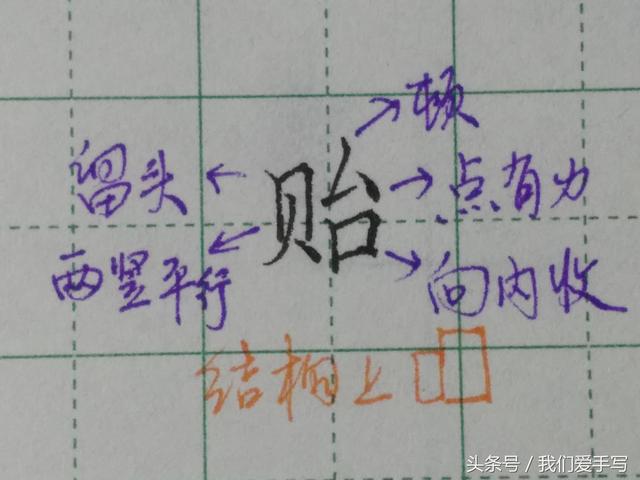 顿
留头
贻
点有力
两竖平行
向内收
结构上
头条号 / 我们爱手写